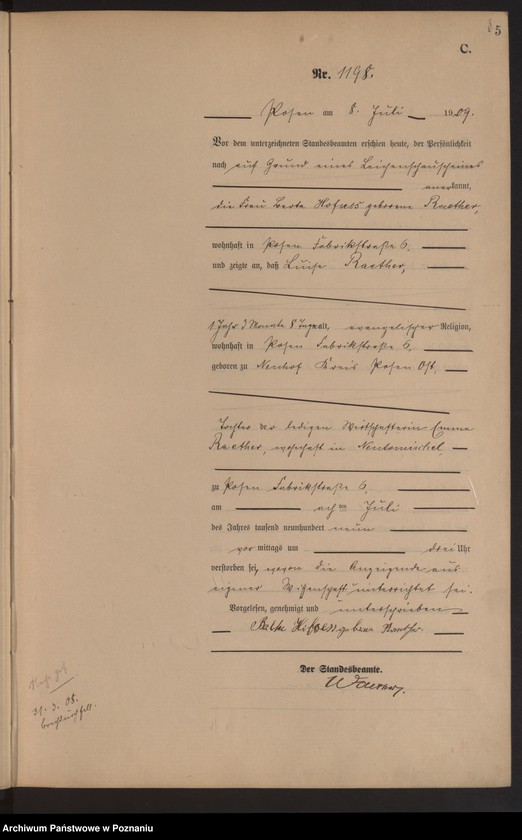 5
C.
Nr. 1198.
Posen am 8. Juli 1909.
Vor dem unterzeichneten Standesbeamten erschien heute, der Persönlichkeit
nach auf Grund eines Leichenschauscheines
anerkannt,
die Frau Berta geborene Raether,
wohnhaft in Posen Fabrikstraße 6,
und zeigte an, daß Luise Raether,
1 Jahr 3 Monate 8 Tage alt, evangelischer Religion,
wohnhaft in Posen Fabrikstraße 6,
geboren zu Neuhof Kreis Posen Ost,
Tochter der ledigen Wirtschafterin Emma
Raether, wohnhaft in Neutomischel,
zu Posen Fabrikstraße 6,
am achten Juli
des Jahres tausend neunhundert neun
vor mittags um drei Uhr
verstorben sei, wovon die Anzeigende aus
eigener Wissenschaft unterrichtet sei.
Vorgelesen, genehmigt und unterschrieben
geborene Raether.
Der Standesbeamte.
31. 3. 08.
Archiwum Państwowe w Poznaniu